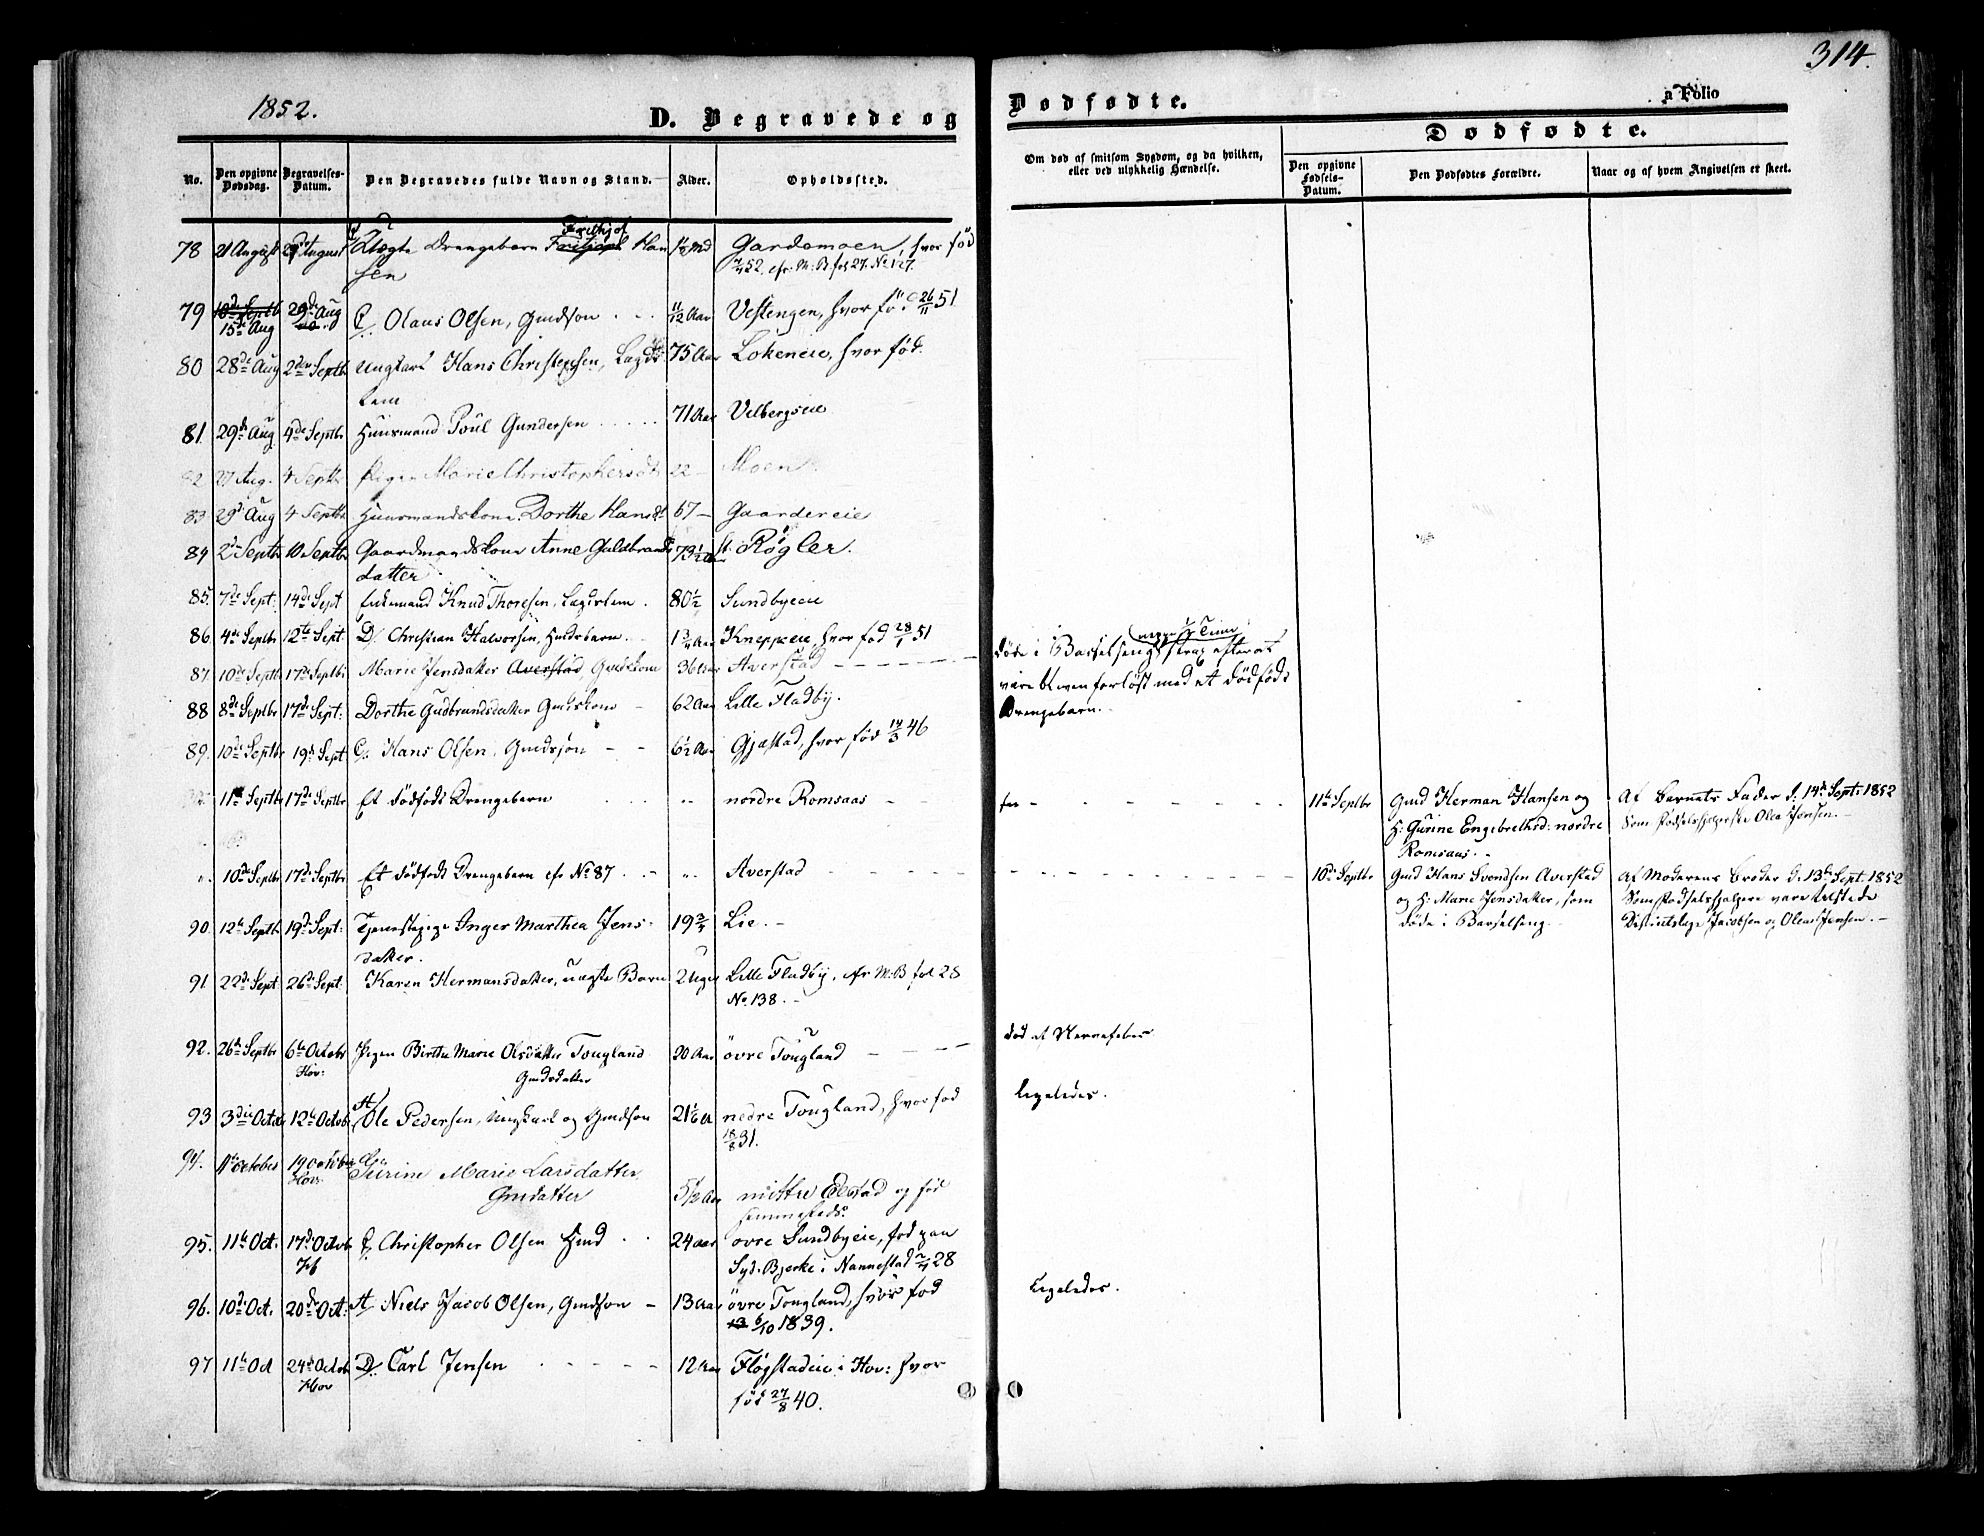 314.
1852.
D. Begravede og Dødfødte.
a Folio
Dødfødte.
No.
Den opgivne Dødsdag.
Begravelses-Datum.
Den Begravedes fulde Navn og Stand.
Alder.
Opholdssted.
Om død af smitsom Sygdom, og da hvilken, eller ved ulykkelig Hændelse.
Den opgivne Fødsels-Datum.
Den Dødfødtes Forældre.
Naar og af hvem Angivelsen er skeet.
78 21 August August Uægte Drengebarn Frithjof Han Gardemoen, hvor fød
sen 52. cfr. M.B. fol 27. No 127.
79 10de Septb 15de Aug 29de Aug Olaus Olsen, Gmdsøn 11/12 Aar Vestengen, hvor fød 26/11 51
80 28de Aug 2den Septb Ungkarl Hans Christensen, Lægds 75 Aar Lokeneie, hvor fød.
lem
81. 29de Aug 4de Septbr Huusmand Poul Gundersen 71 Aar Velbergseie
82 27 Aug. 4 Septb Pigen Marie Christophersdt 22 – Moen
83 29de Aug 4 Septb Huusmandskone Dorthe Hansdt 67 – Gaardereie
84 2de Septb 10 Septbr Gaardmandskone Anne Guldbrands 73 1/2 Aar St. Røgler.
datter
85. 7de Sept. 14de Sept Enkemand Knud Thoresen, Lægdslem. 80 1/2 Sundbyeie
86 4de Septbr 12te Sept. D/ Christian Halvorsen, Husbarn 1 3/4 Aar Kneppeie, hvor fød 28/1 51
87. 10de Septb 17de Septbr Marie Jensdatter Averstad Gmdskone 36 Aar Averstad døde i Barselseng strax efter at
være bleven forløst med et dødfødt
Drengebarn.
88 8de Septbr 17de Sept: Dorthe Gudbrandsdatter Gmdskone – 62 Aar Lille Fladby.
89. 10de Septbr 19de Sept Hans Olsen, Gmdssøn – – 6 1/2 Aar Gjæstad, hvor fød 14/3 46
11te Septbr 17de Septbr Et dødfødt Drengebarn " nordre Romsaas 11te Septbr Gmd Herman Hansen og Af Barnets Fader d. 14de Sept: 1852
H: Gurine Engebrethsd: nordre Som Fødselshjelperske Olea Jensen.
Romsaas.
". 10de Septbr 17de Septbr Et dødfødt Drengebarn cfr No 87 " Averstad 10de Septbr Gmd Hans Svendsen Averstad Af Moderens Broder d. 13de Sept. 1852
og H: Marie Jensdatter, som Som Fødselshjelpere vare tilstede
døde i Barselseng. Districtslæge Jacobsen og Olea Jensen.
90. 12te Septb 19de Sept: Tjenestepige Inger Marthea Jens- 19 3/4 Lie.
datter.
91 22de Sept 26de Sept. Karen Hermansdatter, uægte Barn 2 Uger Lille Fladby, cfr M:B fol 28
No. 138.
92. 26de Septbr 6te Octobr Pigen Birthe Marie Olsdatter Tougland 20 Aar övre Tougland død af Nervefeber
Hov: Gmdsdatter
93 3die Octob 12te Octob Ole Pedersen, Ungkarl og Gmdsøn 21 1/6 A nedre Tougland, hvor fød ligeledes.
18/8 31.
94. 11te October 19 October Sürine Marie Larsdatter
Hov: Gmdatter 5 1/2 Aar mittre Elstad og fød
sammesteds.
95. 11te Oct. 17de Octob Christopher Olsen Hmd 24 aar övre Sundbyeie, fød paa
Syd. Bjerke i Nannestad 28
96. 10de Oct. 20de Oct: A/ Niels Jacob Olsen, Gmdsøn – 13 Aar övre Tougland, hvor fød Ligeledes.
13 6/10 1839.
97 11te Oct 24de Octob D. Carl Jensen 12 Aar Flögstadeie i Hov: hvor
Hov fød 27/8 40.